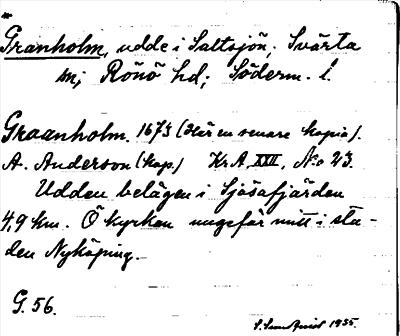 Granholm, udde i Saltsjön, Svärta
sn; Rönö hd; Söderm. l.
Graanholm. 1673 (Här en senare kopia).
A. Anderson (kop.) Kr.A. XXII, No 23.
Udden belägen i Sjösafjärden
4,9 km. Ö kyrkan ungefär mitt i sta-
den Nyköping.-
G. 56.
1955.